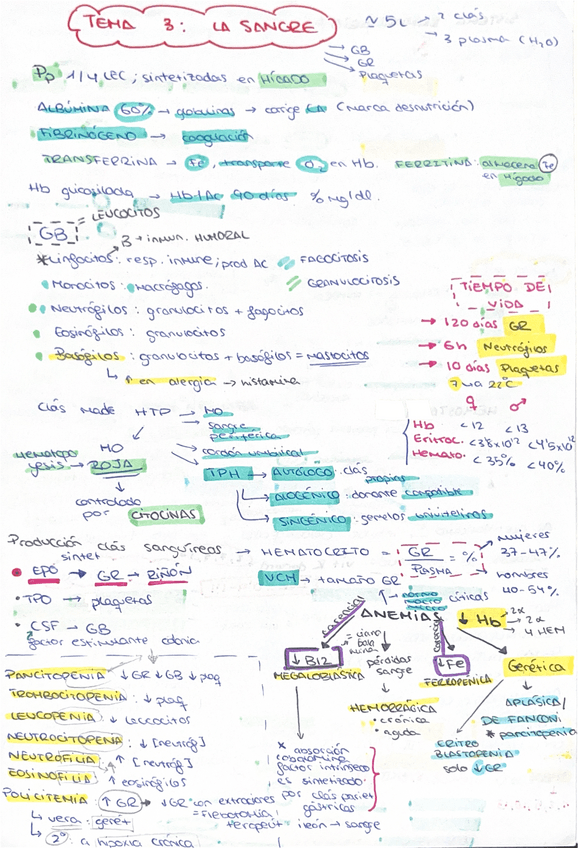 TEMA 3: LA SANGRE
~ 5L → 2 clás
→ 3 plasma (H₂O)
→ GB
→ GR
→ Plaquetas
Pp 1/4 LEC; sintetizadas en HÍGADO
ALBÚMINA 60% → globulinas → corrige CA (marca desnutrición)
FIBRINÓGENO → coagulación
TRANSFERRINA → Fe, transporte O₂ en Hb. FERRITINA: almacena Fe
en Hígado
Hb glicosilada → Hb1Ac 90 días % mg/dl.
GB = LEUCOCITOS
B → inmun. HUMORAL
*Linfocitos: resp. inmune; prod AC
FAGOCITOSIS
Monocitos: macrófagos.
GRANULOCITOSIS
Neutrófilos: granulocitos + fagocitos
Eosinófilos: granulocitos
Basófilos: granulocitos + basófilos = mastocitos
↳ ↑ en alergia → histamina
TIEMPO DE
VIDA
→ 120 días GR
→ 6h Neutrófilos
→ 10 días Plaquetas
22ºC
♀ ♂
Hb <12 <13
Eritroc. <3'8x10¹² <4'5x10¹²
Hemato. <35% <40%
Clás madre HTP → MO
→ sangre
periférica
→ cordón umbilical
MO
Hematopo
yesis → ROJA
controlado
por CITOCINAS
TPH → AUTÓLOGO: clás
propias
→ ALOGÉNICO: donante compatible
→ SINGÉNICO: gemelos univitelinos
Producción clás sanguíneas → HEMATOCRITO = GR / PLASMA = %
mujeres
37-47%
hombres
40-54%
sintet
• EPO → GR → RIÑÓN
• TPO → plaquetas
• CSF → GB
factor estimulante colonia
VCM → tamaño GR
normo
macro
micro cíticas
ANEMIAS
↓ Hb
2α
4 HEM
carencial
↓ B12
MEGALOBLÁSTICA
pérdidas
sangre
HEMORRÁGICA
• crónica
• aguda
↓ Fe
FERROPÉNICA
Genética
APLÁSICA/
DE FANCONI
* pancitopenia
ERITRO
BLASTOPENIA
solo ↓ GR
* absorción
cobalamina
factor intrínseco
es sintetizado
por clás pariet
gástricas
íleon → sangre
PANCITOPENIA ↓ GR ↓ GB ↓ plaq
TROMBOCITOPENIA: ↓ plaq
LEUCOPENIA ↓ leucocitos
NEUTROCITOPENIA: ↓ [neutróf]
NEUTROFILIA ↑ [neutróf]
EOSINOFILIA: ↑ eosinófilos
POLICITEMIA: ↑ GR → ↓ GR con extracciones
= flebotomía
terapeút
↳ vera: genét
↳ 2º: a hipoxia crónica